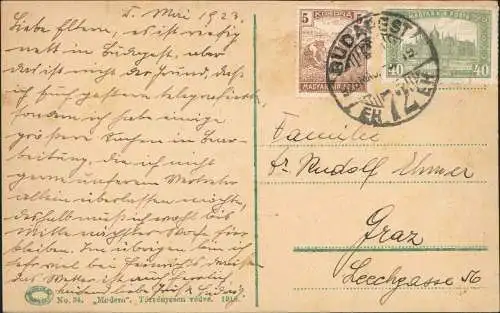 5. Mai 1923.
Liebe Eltern, es ist riesig
nett in Budapest, aber
das ist nicht der Grund, daß
ich früh gestern telegrafierte,
sondern ich habe einige
größere Sachen in Bear-
beitung, die ich nicht
gern unserem Vertreter
allein überlassen möchte,
deshalb muß ich wohl bis
Mitte nächster Woche hier
bleiben. Im übrigen bin ich
sehr viel bei Heinrichs draußen
das Wetter ist auch herrlich
liebe Ludwig
No. 34. „Modern". Törvényesen védve. 1918.
5 KORONA
MAGYAR KIR. POSTA
MAGYAR KIR. POSTA
40 40
BUDAPEST
72
Familie
Dr Rudolf
Graz
Leechgasse 56